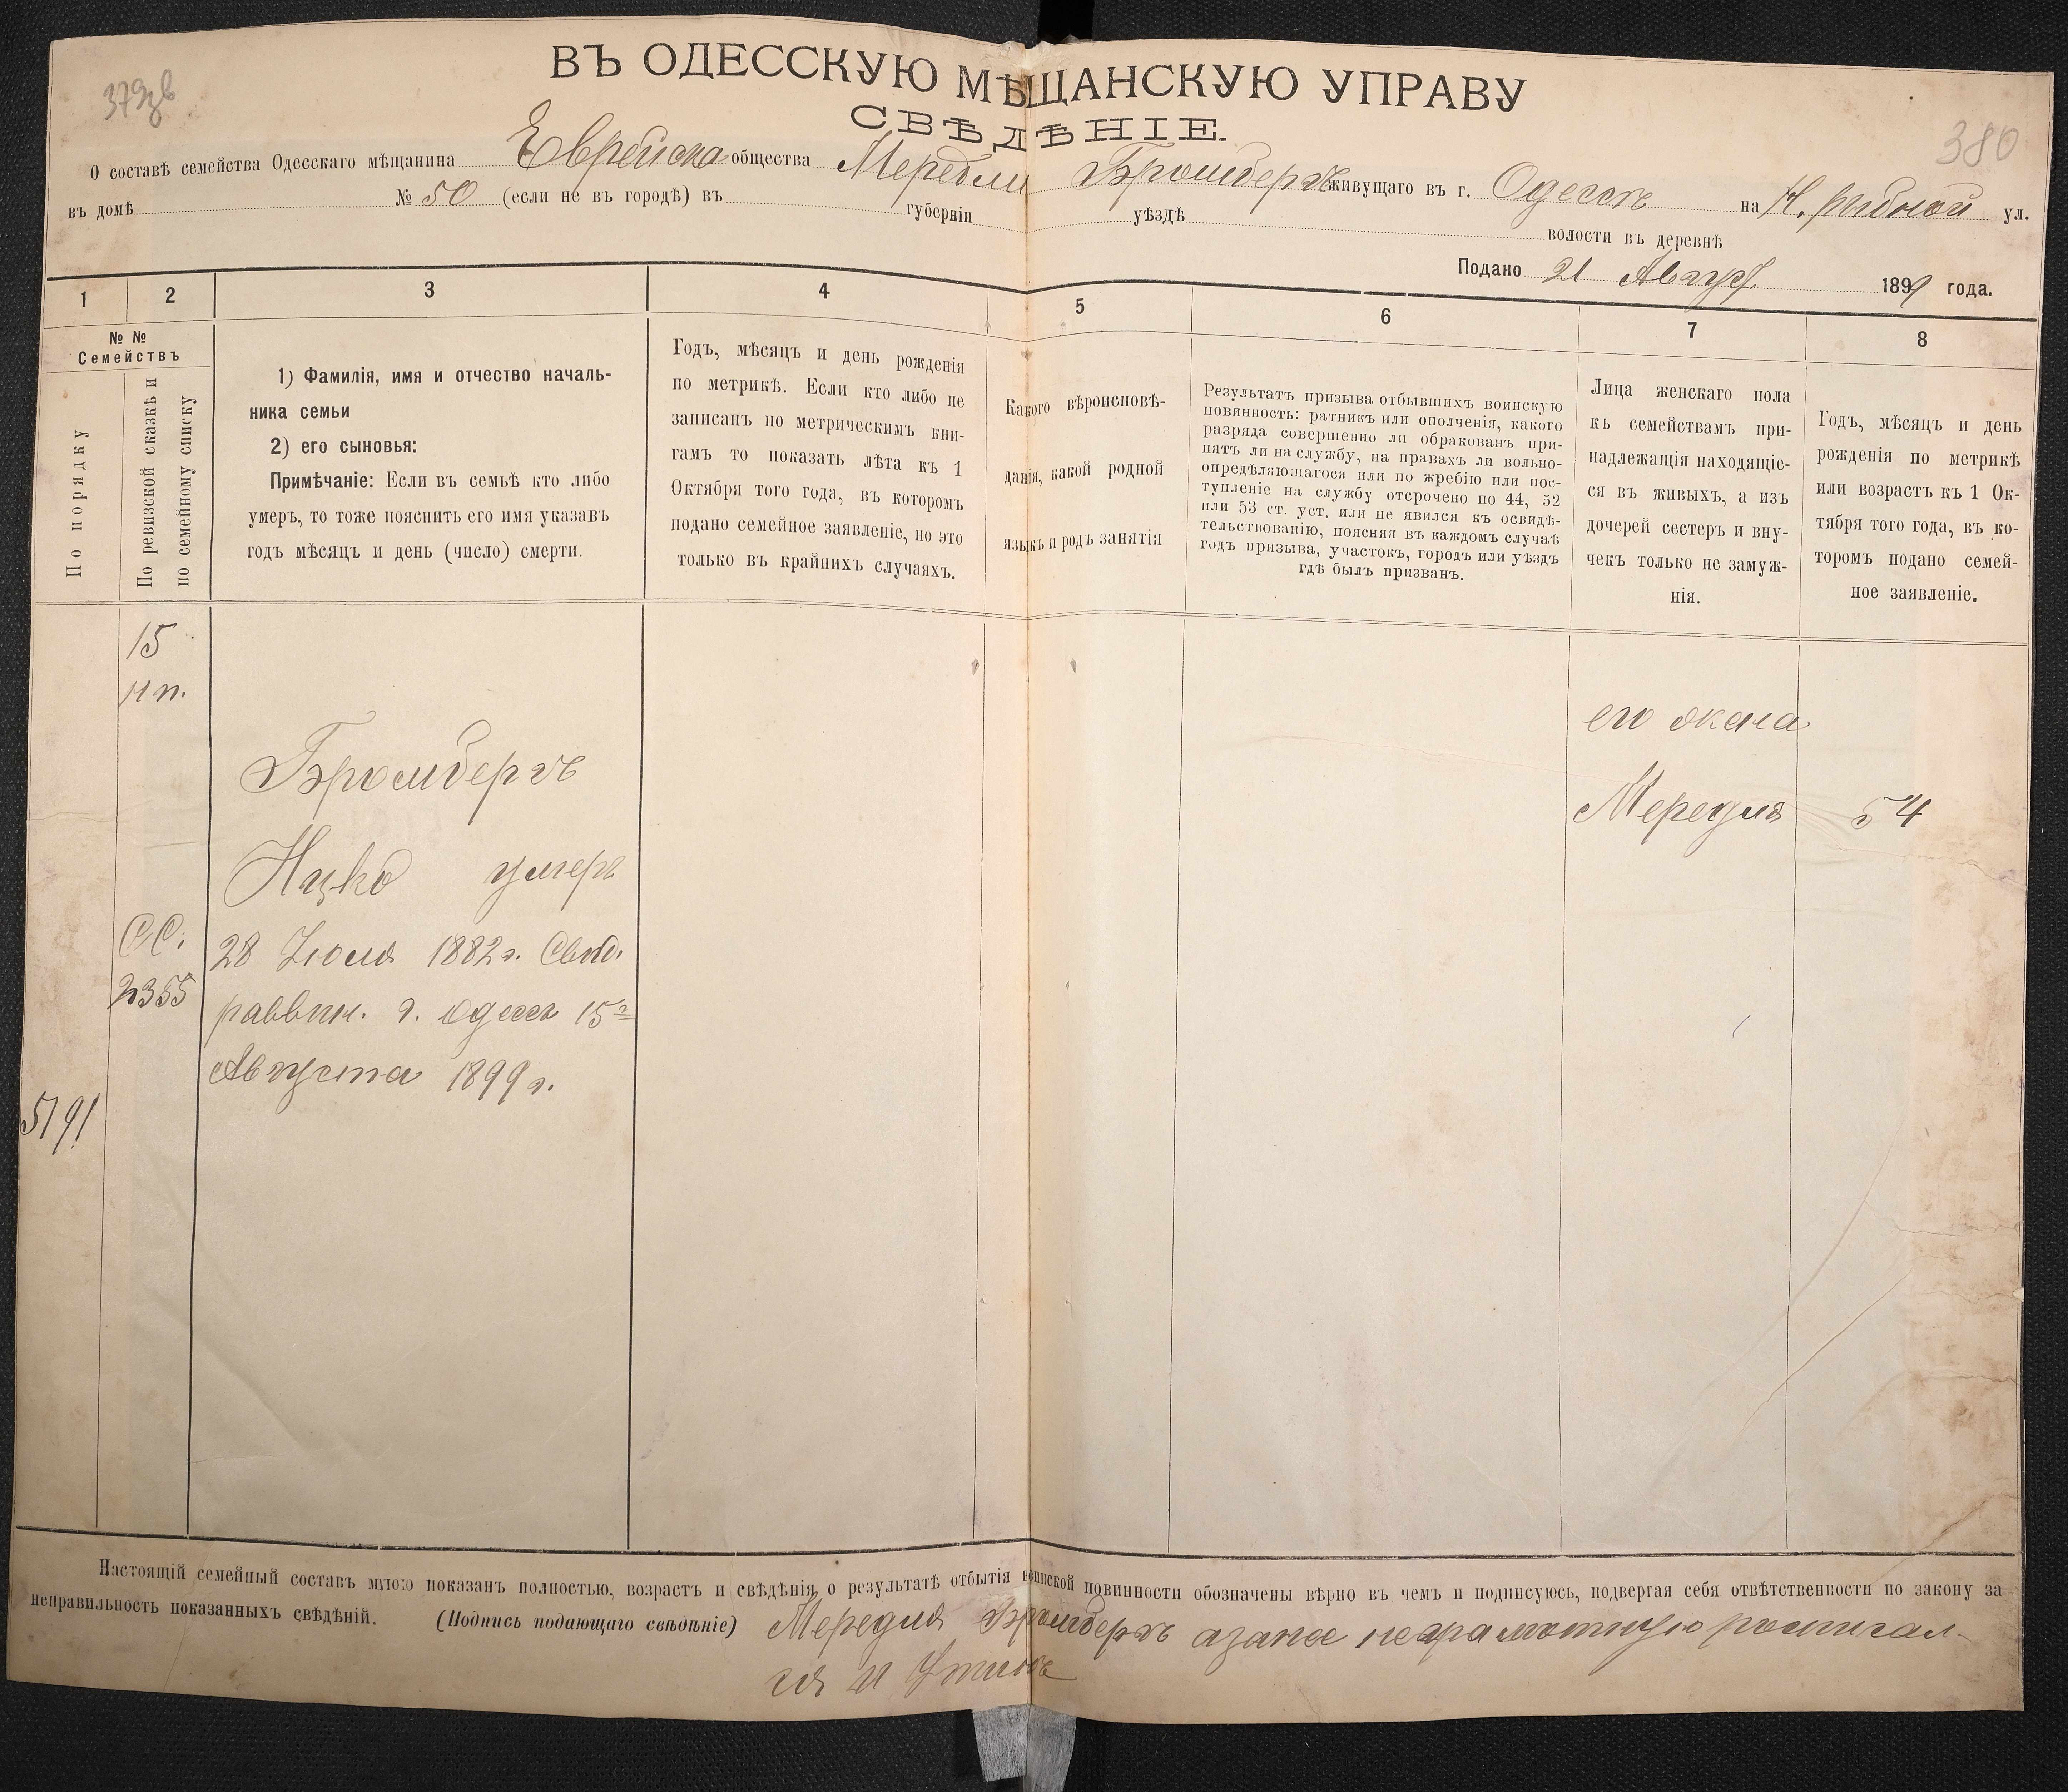 379зв
380
ВЪ ОДЕССКУЮ МѢЩАНСКУЮ УПРАВУ
СВѢДѢНІЕ.
О составѣ семейства Одесскаго мѣщанина Еврейска общества Мередли Бромбергъ живущаго въ г. Одессѣ на Н. рыбной ул.
въ домѣ № 50 (если не въ городѣ) въ губерніи уѣздѣ волости въ деревнѣ
Подано 21 Август. 1899 года.
1 2 3 4 5 6 7 8
№ №
Семействъ
По порядку
По ревизской сказкѣ и
по семейному списку
1) Фамилія, имя и отчество началь-
ника семьи
2) его сыновья:
Примѣчаніе: Если въ семьѣ кто либо
умеръ, то тоже пояснить его имя указавъ
годъ мѣсяцъ и день (число) смерти.
Годъ, мѣсяцъ и день рожденія
по метрикѣ. Если кто либо не
записанъ по метрическимъ кни-
гамъ то показать лѣта къ 1
Октября того года, въ которомъ
подано семейное заявленіе, но это
только въ крайнихъ случаяхъ.
Какого вѣроисповѣ-
данія, какой родной
языкъ и родъ занятія
Результатъ призыва отбывшихъ воинскую
повинность: ратникъ или ополченія, какого
разряда совершенно ли обракованъ при-
нятъ ли на службу, на правахъ ли вольно-
опредѣляющагося или по жребію или пос-
тупленіе на службу отсрочено по 44, 52
или 53 ст. уст. или не явился къ освидѣ-
тельствованію, поясняя въ каждомъ случаѣ
годъ призыва, участокъ, городъ или уѣздъ
гдѣ былъ призванъ.
Лица женскаго пола
къ семействамъ при-
надлежащія находящіе-
ся въ живыхъ, а изъ
дочерей сестеръ и вну-
чекъ только не замуж-
нія.
Годъ, мѣсяцъ и день
рожденія по метрикѣ
или возрастъ къ 1 Ок-
тября того года, въ ко-
торомъ подано семей-
ное заявленіе.
15
нп.
СС.
2355
5191
Бромбергъ
Ицко умеръ
28 Іюля 1882 г. Свид.
раввин. г. Одессы 15го
Августа 1899 г.
его жена
Мередля 54
Настоящій семейный составъ мною показанъ полностью, возрастъ и свѣдѣнія о результатѣ отбытія воинской повинности обозначены вѣрно въ чемъ и подписуюсь, подвергая себя отвѣтственности по закону за
неправильность показанныхъ свѣдѣній. (Подпись подающаго свѣдѣніе) Мередля Бромбергъ азанее неграмотную росписал-
ся И